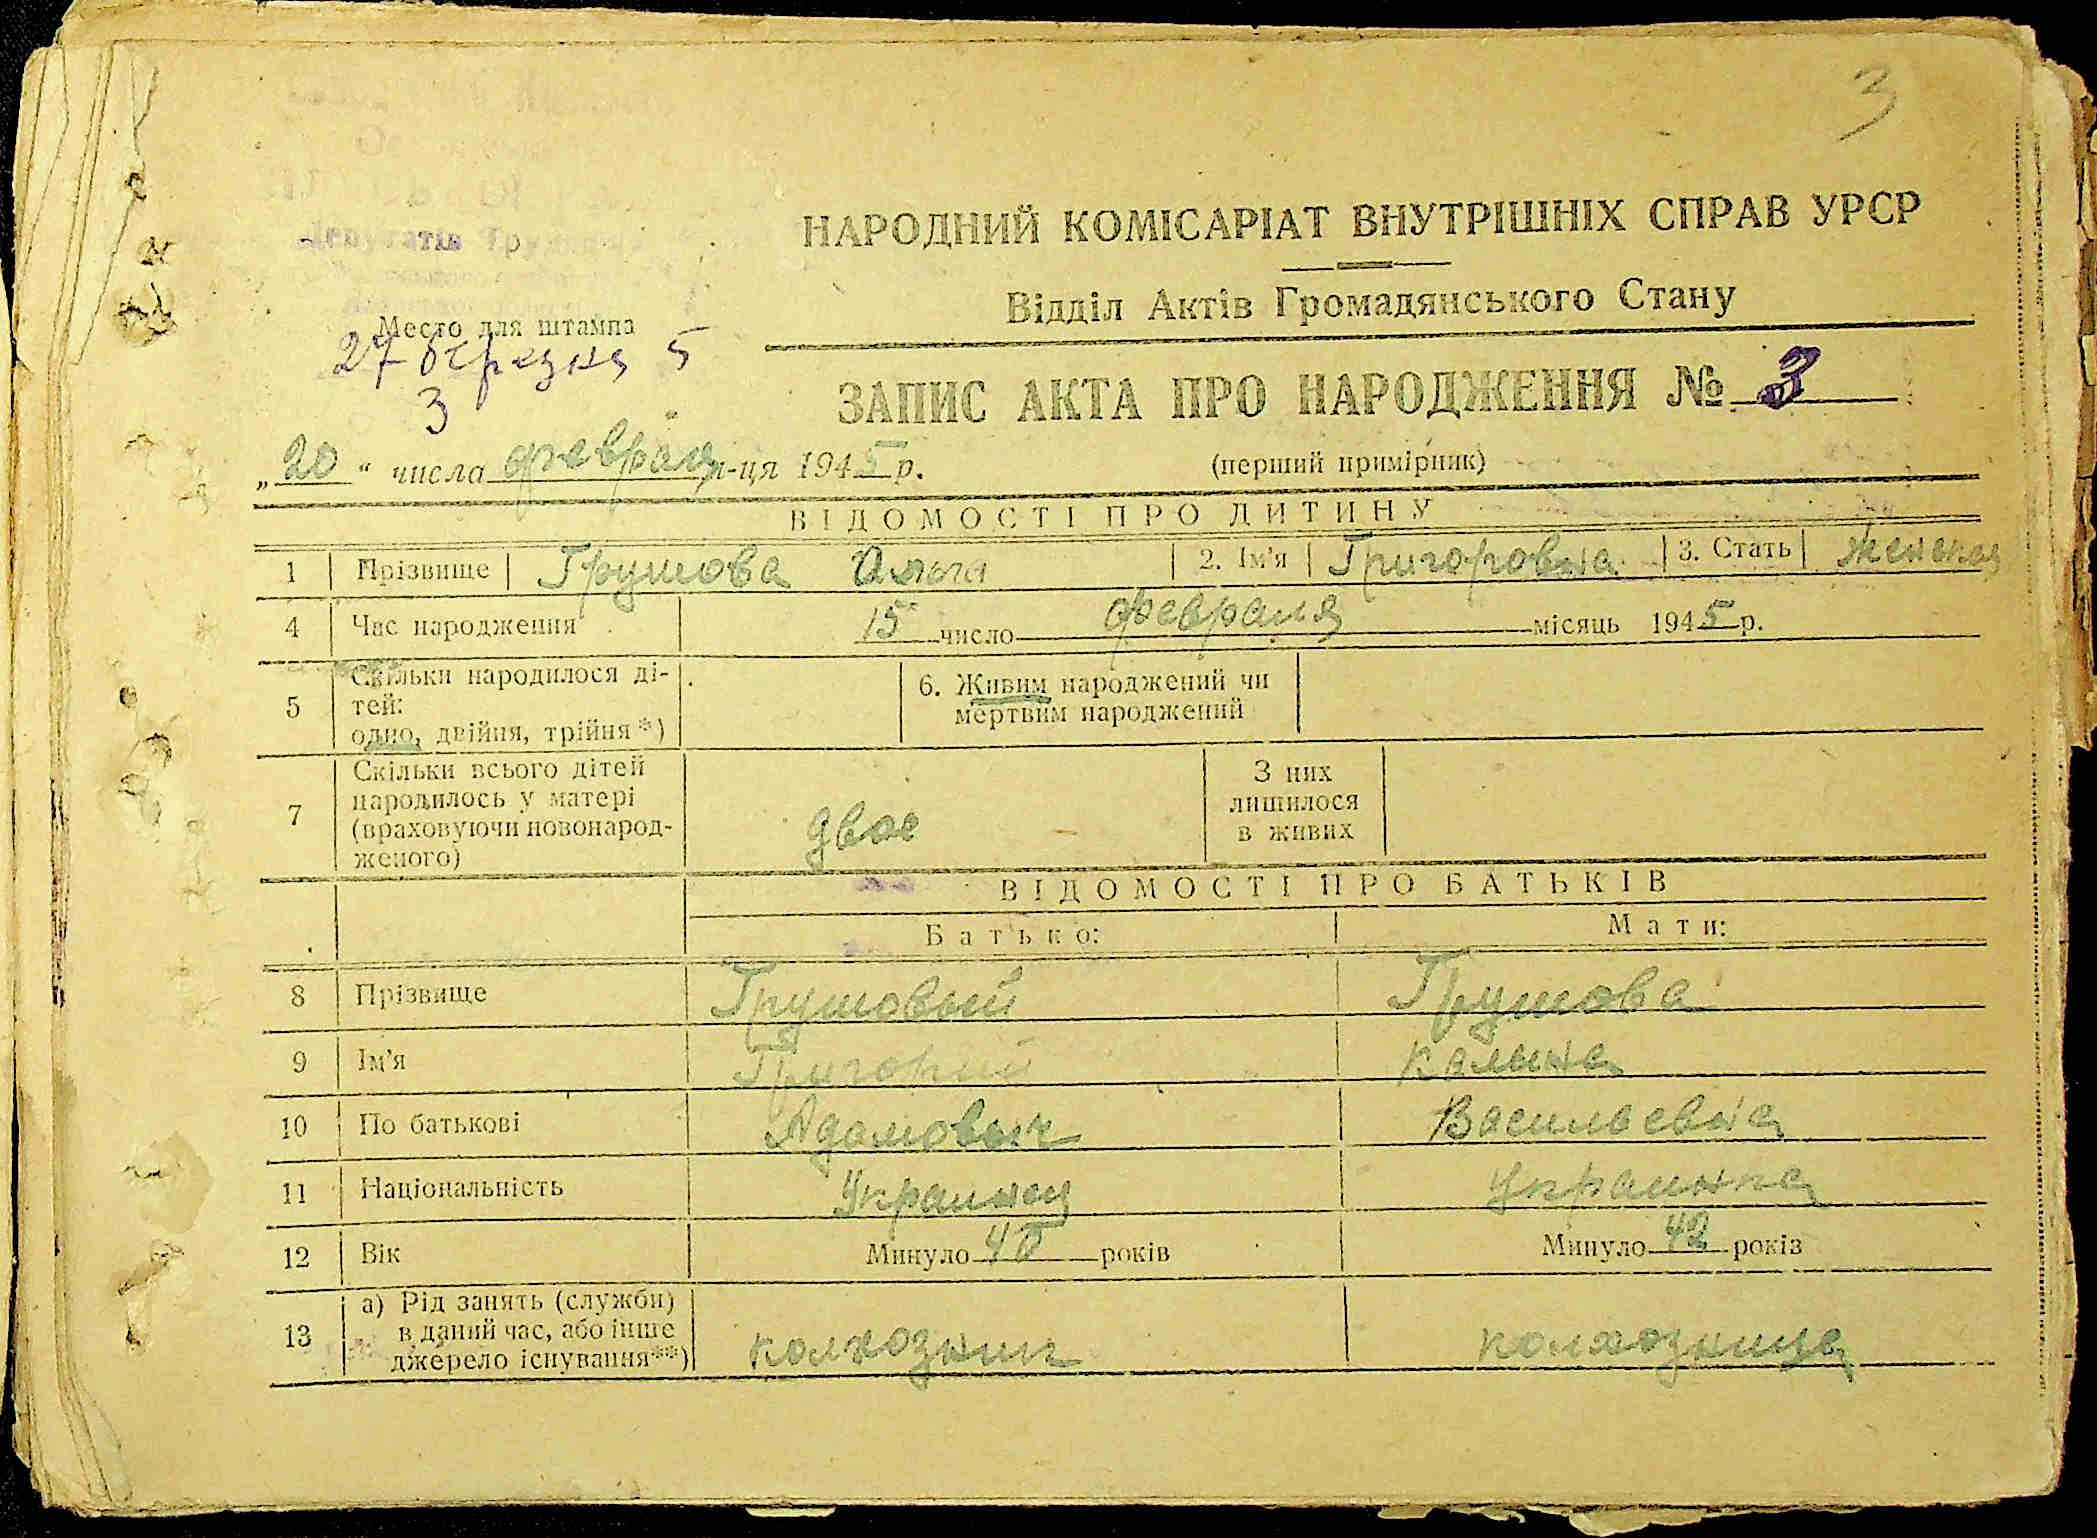 3
НАРОДНИЙ КОМІСАРІАТ ВНУТРІШНІХ СПРАВ УРСР
Відділ Актів Громадянського Стану
Депутатів
Место для штампа
27 березня 5
3
ЗАПИС АКТА ПРО НАРОДЖЕННЯ № 3
„20“ числа февраля м-ця 1945 р. (перший примірник)
ВІДОМОСТІ ПРО ДИТИНУ
1 Прізвище Грушова Ольга 2. Ім'я Григоровна 3. Стать женская
4 Час народження 15 число февраля місяць 1945 р.
5 Скільки народилося ді-
тей:
одно, двійня, трійня*)
6. Живим народжений чи
мертвим народжений
7 Скільки всього дітей
народилось у матері
(враховуючи новонарод-
женого)
двое
З них
лишилося
в живих
ВІДОМОСТІ ПРО БАТЬКІВ
Батько: Мати:
8 Прізвище Грушовый Грушова
9 Ім'я Григорий Калина
10 По батькові Адамович Васильевна
11 Національність Украинец Украинка
12 Вік Минуло 45 років Минуло 42 років
13 а) Рід занять (служби)
в даний час, або інше
джерело існування**)
колхозник колхозница